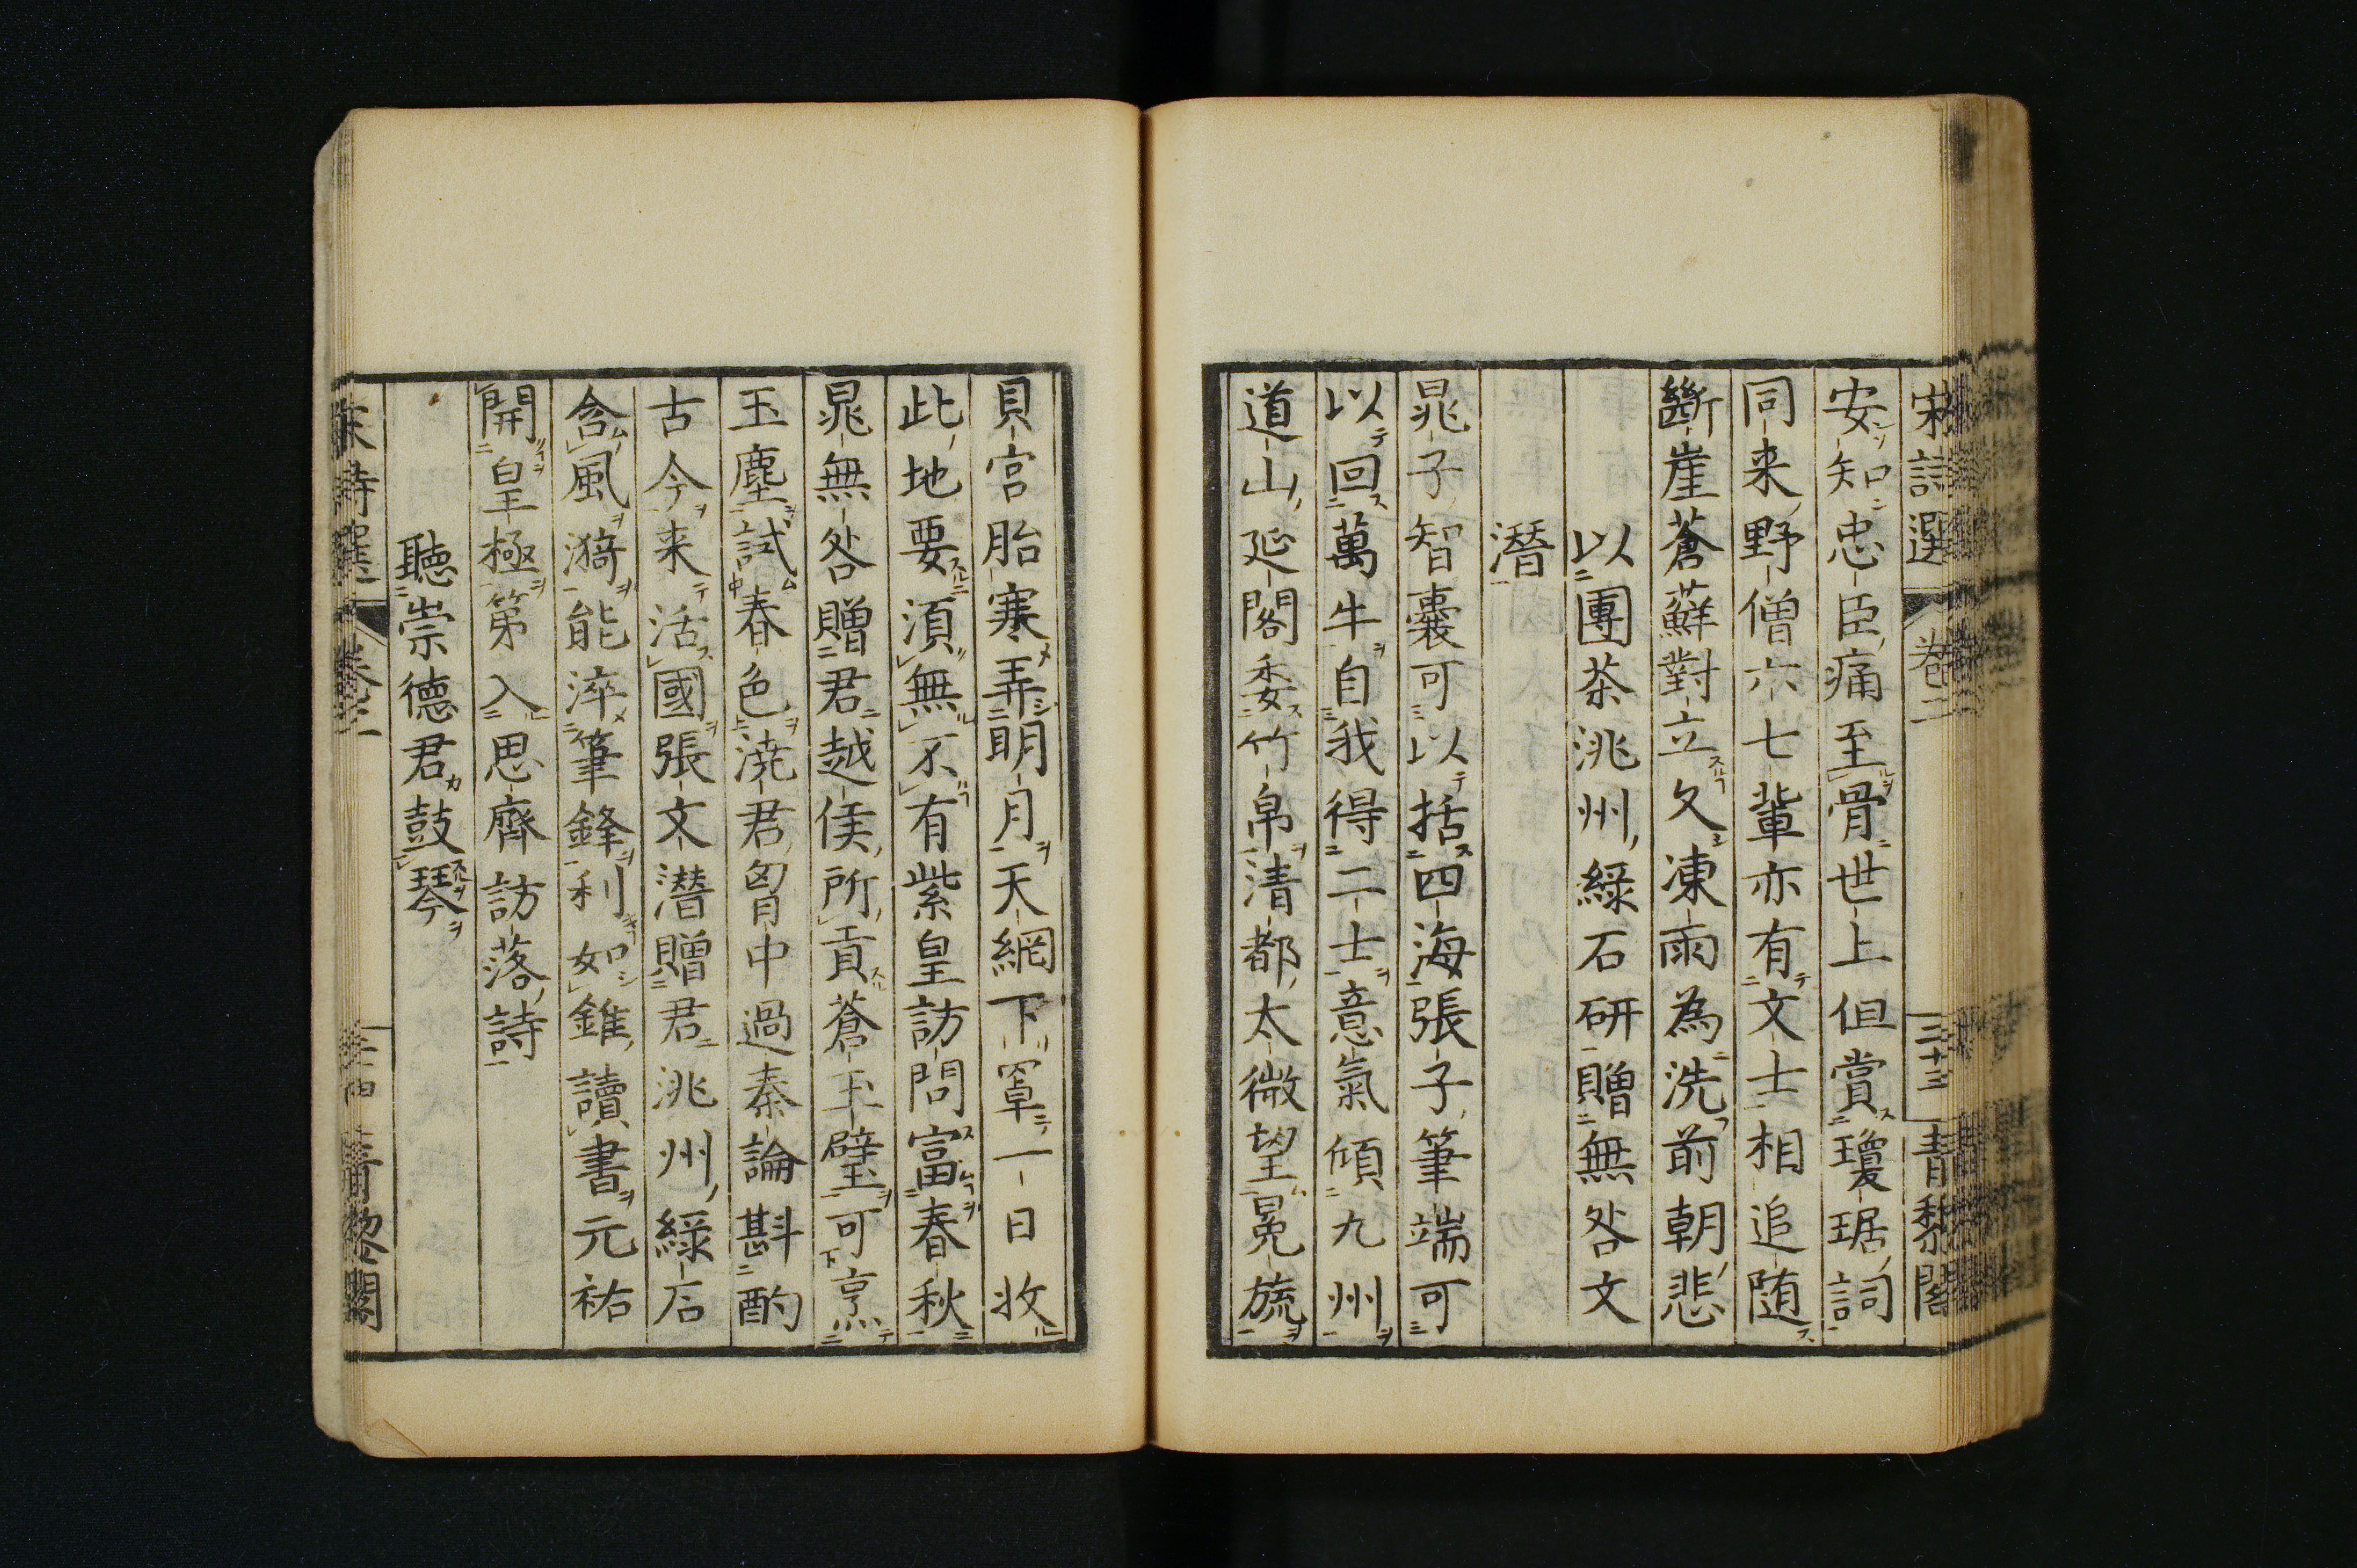 宋詩選 卷二 三十三 青黎閣
安知忠臣痛至骨世上但賞瓊琚詞
同来野僧六七輩亦有文士相追随
斷崖蒼蘚對立久凍雨為洗前朝悲
以團茶洮州綠石研贈無咎文
潛
晁子智囊可以括四海張子筆端可
以回萬牛自我得二士意氣傾九州
道山延閣委竹帛清都太微望冕旒
貝宮胎寒弄明月天網下罩一日收
此地要須無不有紫皇訪問富春秋
晁無咎贈君越侯所貢蒼玉璧可烹
玉塵試春色澆君胷中過秦論斟酌
古今来活國張文潛贈君洮州綠石
含風漪能淬筆鋒利如錐讀書元祐
開皇極第入思齊訪落詩
聽崇德君鼓琴
宋詩選 卷二 三十四 青黎閣